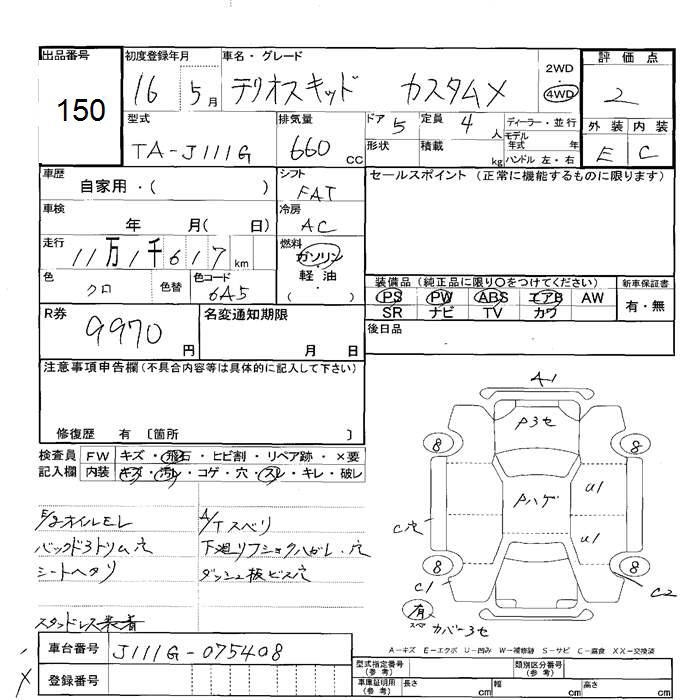 出品番号 初度登録年月 車名・グレード 2WD・4WD 評価点
150 16 5月 テリオスキッド カスタムX 2
型式 排気量 ドア 5 定員 4人 ディーラー・並行 外装 内装
TA-J111G 660cc 形状 積載 kg モデル年式 年 ハンドル 左・右 E C
車歴 自家用・( ) シフト FAT セールスポイント (正常に機能するものに限ります)
車検 年 月( 日) 冷房 AC
走行 11万1千617km 燃料 ガソリン・軽油・( )
色 クロ 色替 色コード 6A5
装備品(純正品に限り〇をつけてください) 新車保証書
PS PW ABS エアB AW 有・無
SR ナビ TV カワ
R券 9970円 名変通知期限 月 日 後日品
注意事項申告欄(不具合内容等は具体的に記入して下さい)
修復歴 有 〔箇所 〕
検査員 FW キズ・飛石・ヒビ割・リペア跡・×要
記入欄 内装 キズ・汚レ・コゲ・穴・スレ・キレ・破レ
A1
Pヨセ
8 8
Pハゲ U1
U1
C穴
8 8
C1 C2
有 スペ カバーヨセ
E/gオイルモレ A/Tスベリ
バックドアトリム穴 下廻リフショクハガレ・穴
シートヘタリ ダッシュ板ビス穴
スタンドレス装着
A－キズ E－エクボ U－凹み W－補修跡 S－サビ C－腐食 XX－交換済
車台番号 J111G-075408
登録番号
型式指定番号(参考) 類別区分番号(参考)
車庫証明用(参考) 長さ cm 幅 cm 高さ cm